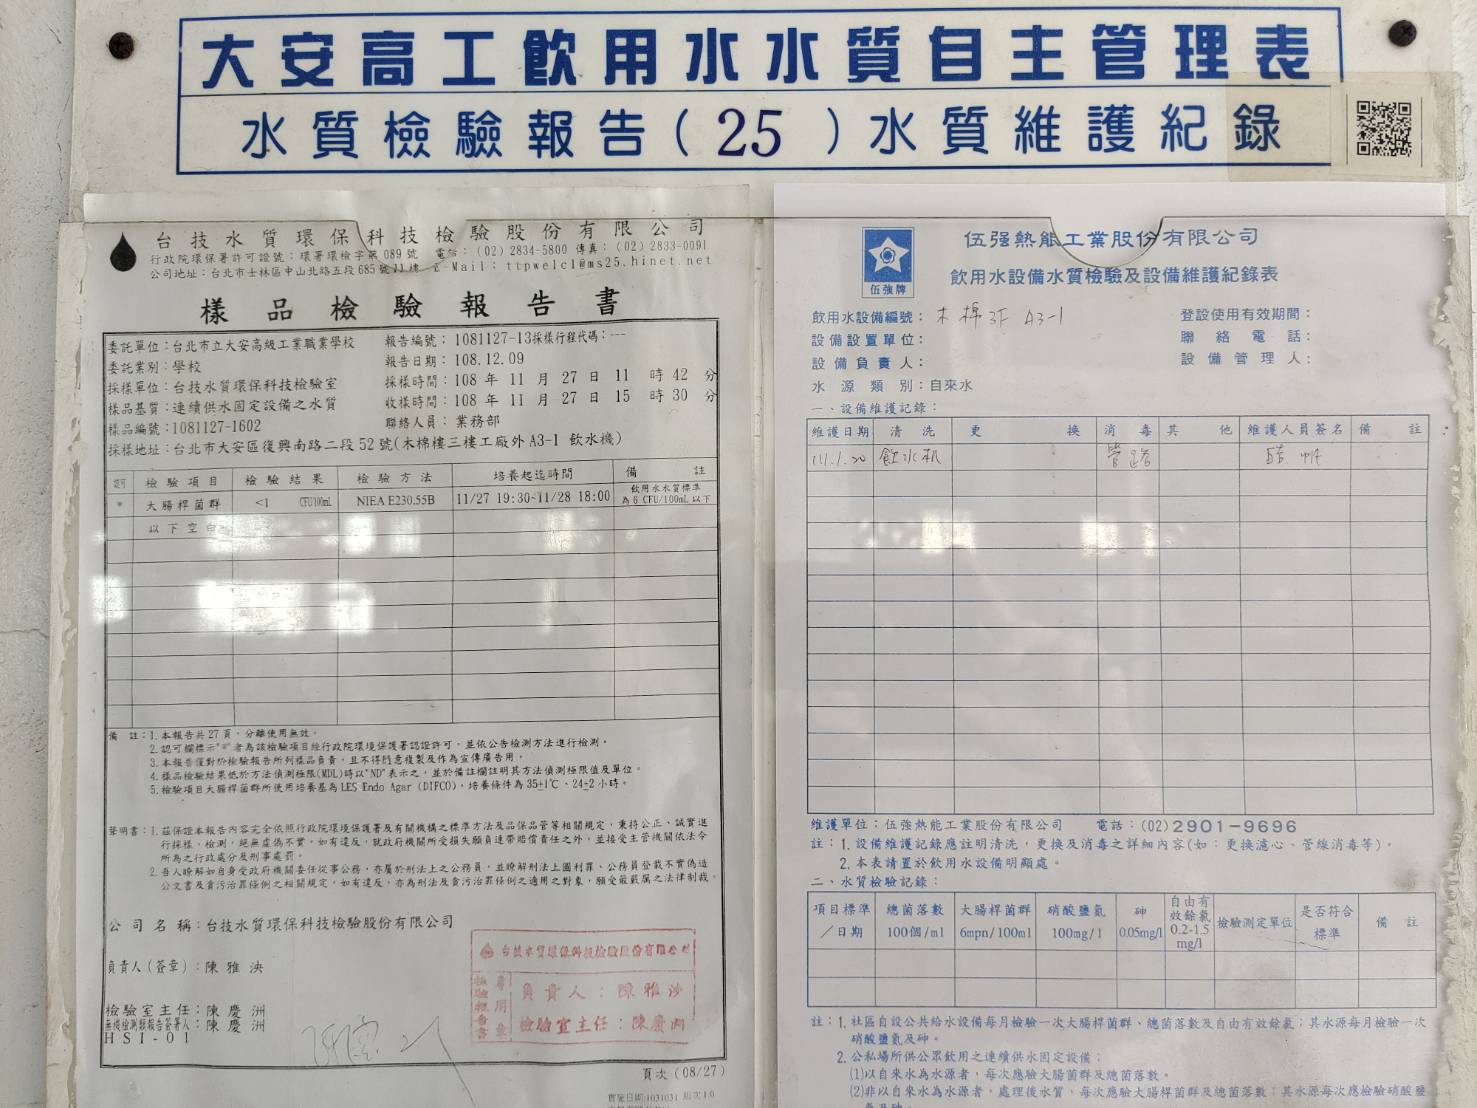 大安高工飲用水水質自主管理表
水質檢驗報告(25)水質維護紀錄
台技水質環保科技檢驗股份有限公司
行政院環保署許可證號：環署環檢字第089號 電話：(02)2834-5800 傳真：(02)2833-0091
公司地址：台北市士林區中山北路五段685號11樓 E-Mail：ttpwelcl@ms25.hinet.net
樣品檢驗報告書
委託單位：台北市立大安高級工業職業學校 報告編號：1081127-13採樣行程代碼：---
委託業別：學校 報告日期：108.12.09
採樣單位：台技水質環保科技檢驗室 採樣時間：108 年 11 月 27 日 11 時 42 分
樣品基質：連續供水固定設備之水質 收樣時間：108 年 11 月 27 日 15 時 30 分
樣品編號：1081127-1602 聯絡人員：業務部
採樣地址：台北市大安區復興南路二段52號(木棉樓三樓工廠外A3-1 飲水機)
檢驗項目 檢驗結果 檢驗方法 培養起迄時間 備註
* 大腸桿菌群 <1 CFU/100mL NIEA E230.55B 11/27 19:30~11/28 18:00 飲用水水質標準
為6 CFU/100mL以下
以下空白
備 註：1.本報告共27頁，分離使用無效。
2.認可欄標示"*"者為該檢驗項目經行政院環境保護署認證許可，並依公告檢測方法進行檢測。
3.本報告僅對於檢驗報告所列樣品負責，且不得隨意複製及作為宣傳廣告用。
4.樣品檢驗結果低於方法偵測極限(MDL)時以"ND"表示之，並於備註欄註明其方法偵測極限值及單位。
5.檢驗項目大腸桿菌群所使用培養基為LES Endo Agar (DIFCO)，培養條件為35±1℃、24±2小時。
聲明書：1.茲保證本報告內容完全依照行政院環境保護署及有關機構之標準方法及品保品管等相關規定，秉持公正、誠實進
行採樣、檢測，絕無虛偽不實。如有違反，就政府機關所受損失願負連帶賠償責任之外，並接受主管機關依法令
所為之行政處分及刑事處罰。
2.吾人瞭解如自身受政府機關委任從事公務，亦屬於刑法上之公務員，並瞭解刑法上圖利罪、公務員登載不實偽造
公文書及貪污治罪條例之相關規定，如有違反，亦為刑法及貪污治罪條例之適用之對象，願受最嚴厲之法律制裁。
公司名稱：台技水質環保科技檢驗股份有限公司
負責人(簽章)：陳雅泱
檢驗室主任：陳慶洲
無機檢測類報告簽署人：陳慶洲
HSI-01
台技水質環保科技檢驗股份有限公司
檢驗報告書
專用章
負責人：陳雅泱
檢驗室主任：陳慶洲
頁次(08/27)
實施日期:1031031 版次1.0
伍強牌
伍强熱能工業股份有限公司
飲用水設備水質檢驗及設備維護紀錄表
飲用水設備編號：木棉3F A3-1 登設使用有效期間：
設備設置單位： 聯絡電話：
設備負責人： 設備管理人：
水源類別：自來水
一、設備維護記錄：
維護日期 清洗 更換 消毒 其他 維護人員簽名 備註
111.1.20 飲水机 管路
維護單位：伍強熱能工業股份有限公司 電話：(02)2901-9696
註：1.設備維護記錄應註明清洗，更換及消毒之詳細內容(如：更換濾心、管線消毒等)。
2.本表請置於飲用水設備明顯處。
二、水質檢驗記錄：
項目標準／日期 總菌落數100個/ml 大腸桿菌群6mpn/100ml 硝酸鹽氮100mg/l 砷0.05mg/l 自由有效餘氯0.2-1.5mg/l 檢驗測定單位 是否符合標準 備註
註：1.社區自設公共給水設備每月檢驗一次大腸桿菌群、總菌落數及自由有效餘氯；其水源每月檢驗一次
硝酸鹽氮及砷。
2.公私場所供公眾飲用之連續供水固定設備；
(1)以自來水為水源者，每次應驗大腸菌群及總菌落數。
(2)非以自來水為水源者，處理後水質，每次應驗大腸桿菌群及總菌落數；其水源每次應檢驗硝酸鹽
氮及砷。